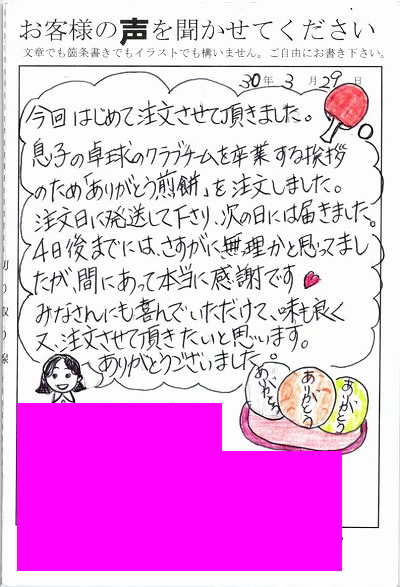 お客様の声を聞かせてください
文章でも箇条書きでもイラストでも構いません。ご自由にお書き下さい。
30年 3月29日
今回はじめて注文させて頂きました。
息子の卓球のクラブチームを卒業する挨拶
のため「ありがとう煎餅」を注文しました。
注文日に発送して下さり、次の日には届きました。
4日後までには、さすがに無理かと思ってまし
たが、間にあって本当に感謝です
みなさんにも喜んでいただけて、味も良く
又、注文させて頂きたいと思います。
ありがとうございました。
ありがとう
ありがとう
ありがとう
切り取り線